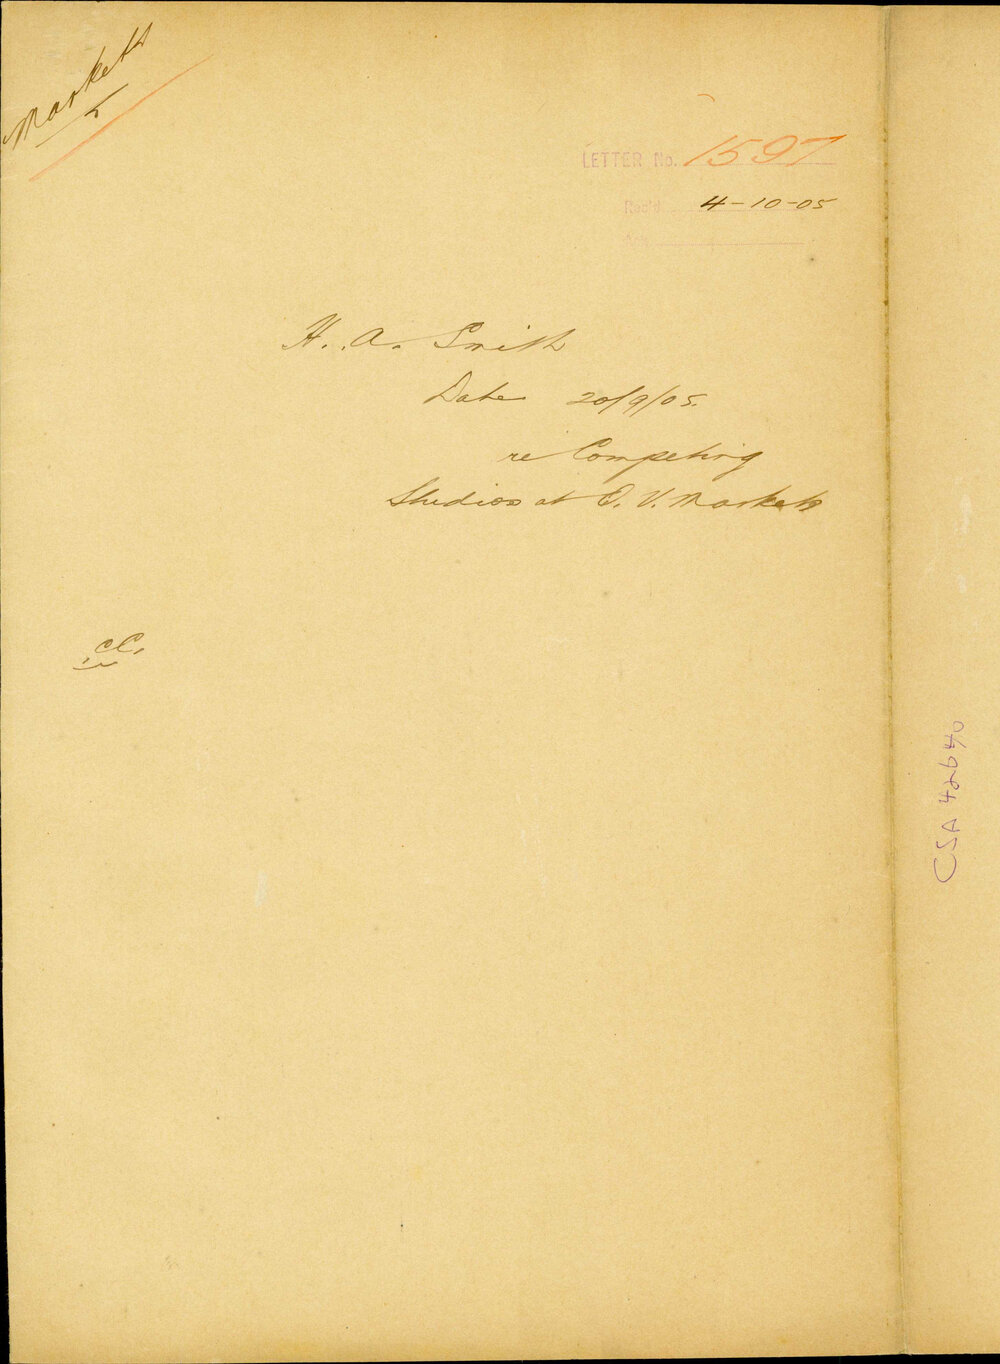 Markets
LETTER No. 1597
Rec'd 4-10-05
Ans
H. A. Smith
Date 20/9/05.
re Competing
Studios at Q. V. Markets
CC.
CSA 42640